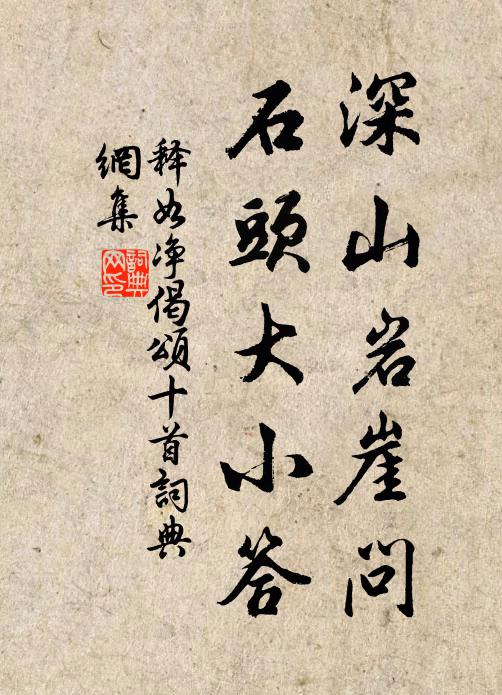 深山岩崖问
石頭大小答
释如净偈頌十首詞典
網集
詞典网印